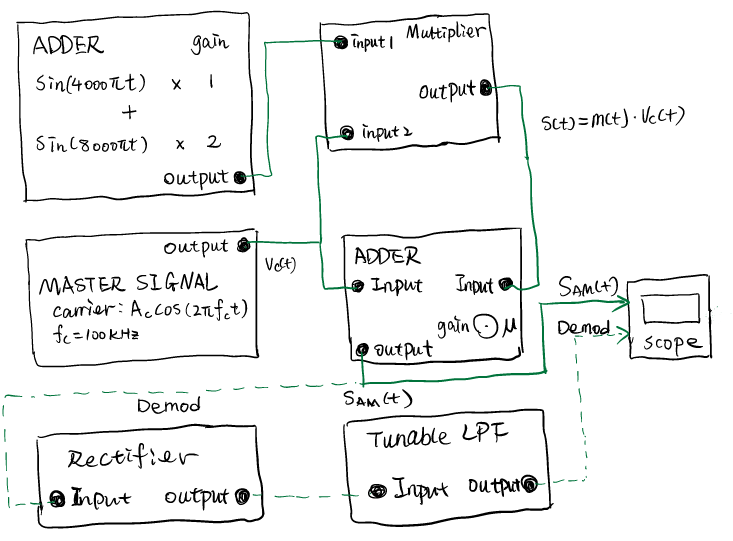 ADDER gain
Sin(4000πt) × 1
+
Sin(8000πt) × 2
output
Multiplier
input1
output
input2
S(t)=m(t)·Vc(t)
output
Vc(t)
MASTER SIGNAL
carrier: Ac cos(2πfct)
fc=100kHz
ADDER
Input Input
gain μ
output
SAM(t)
Demod
scope
Demod
SAM(t)
Rectifier
Input output
Tunable LPF
Input output